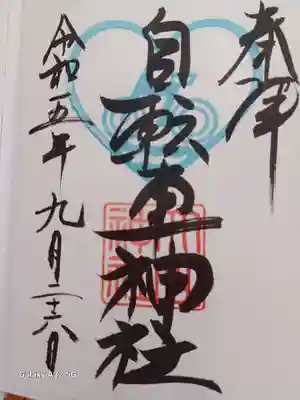 奉拝
自転車神社
令和五年九月二十六日
Galaxy A2. 5G